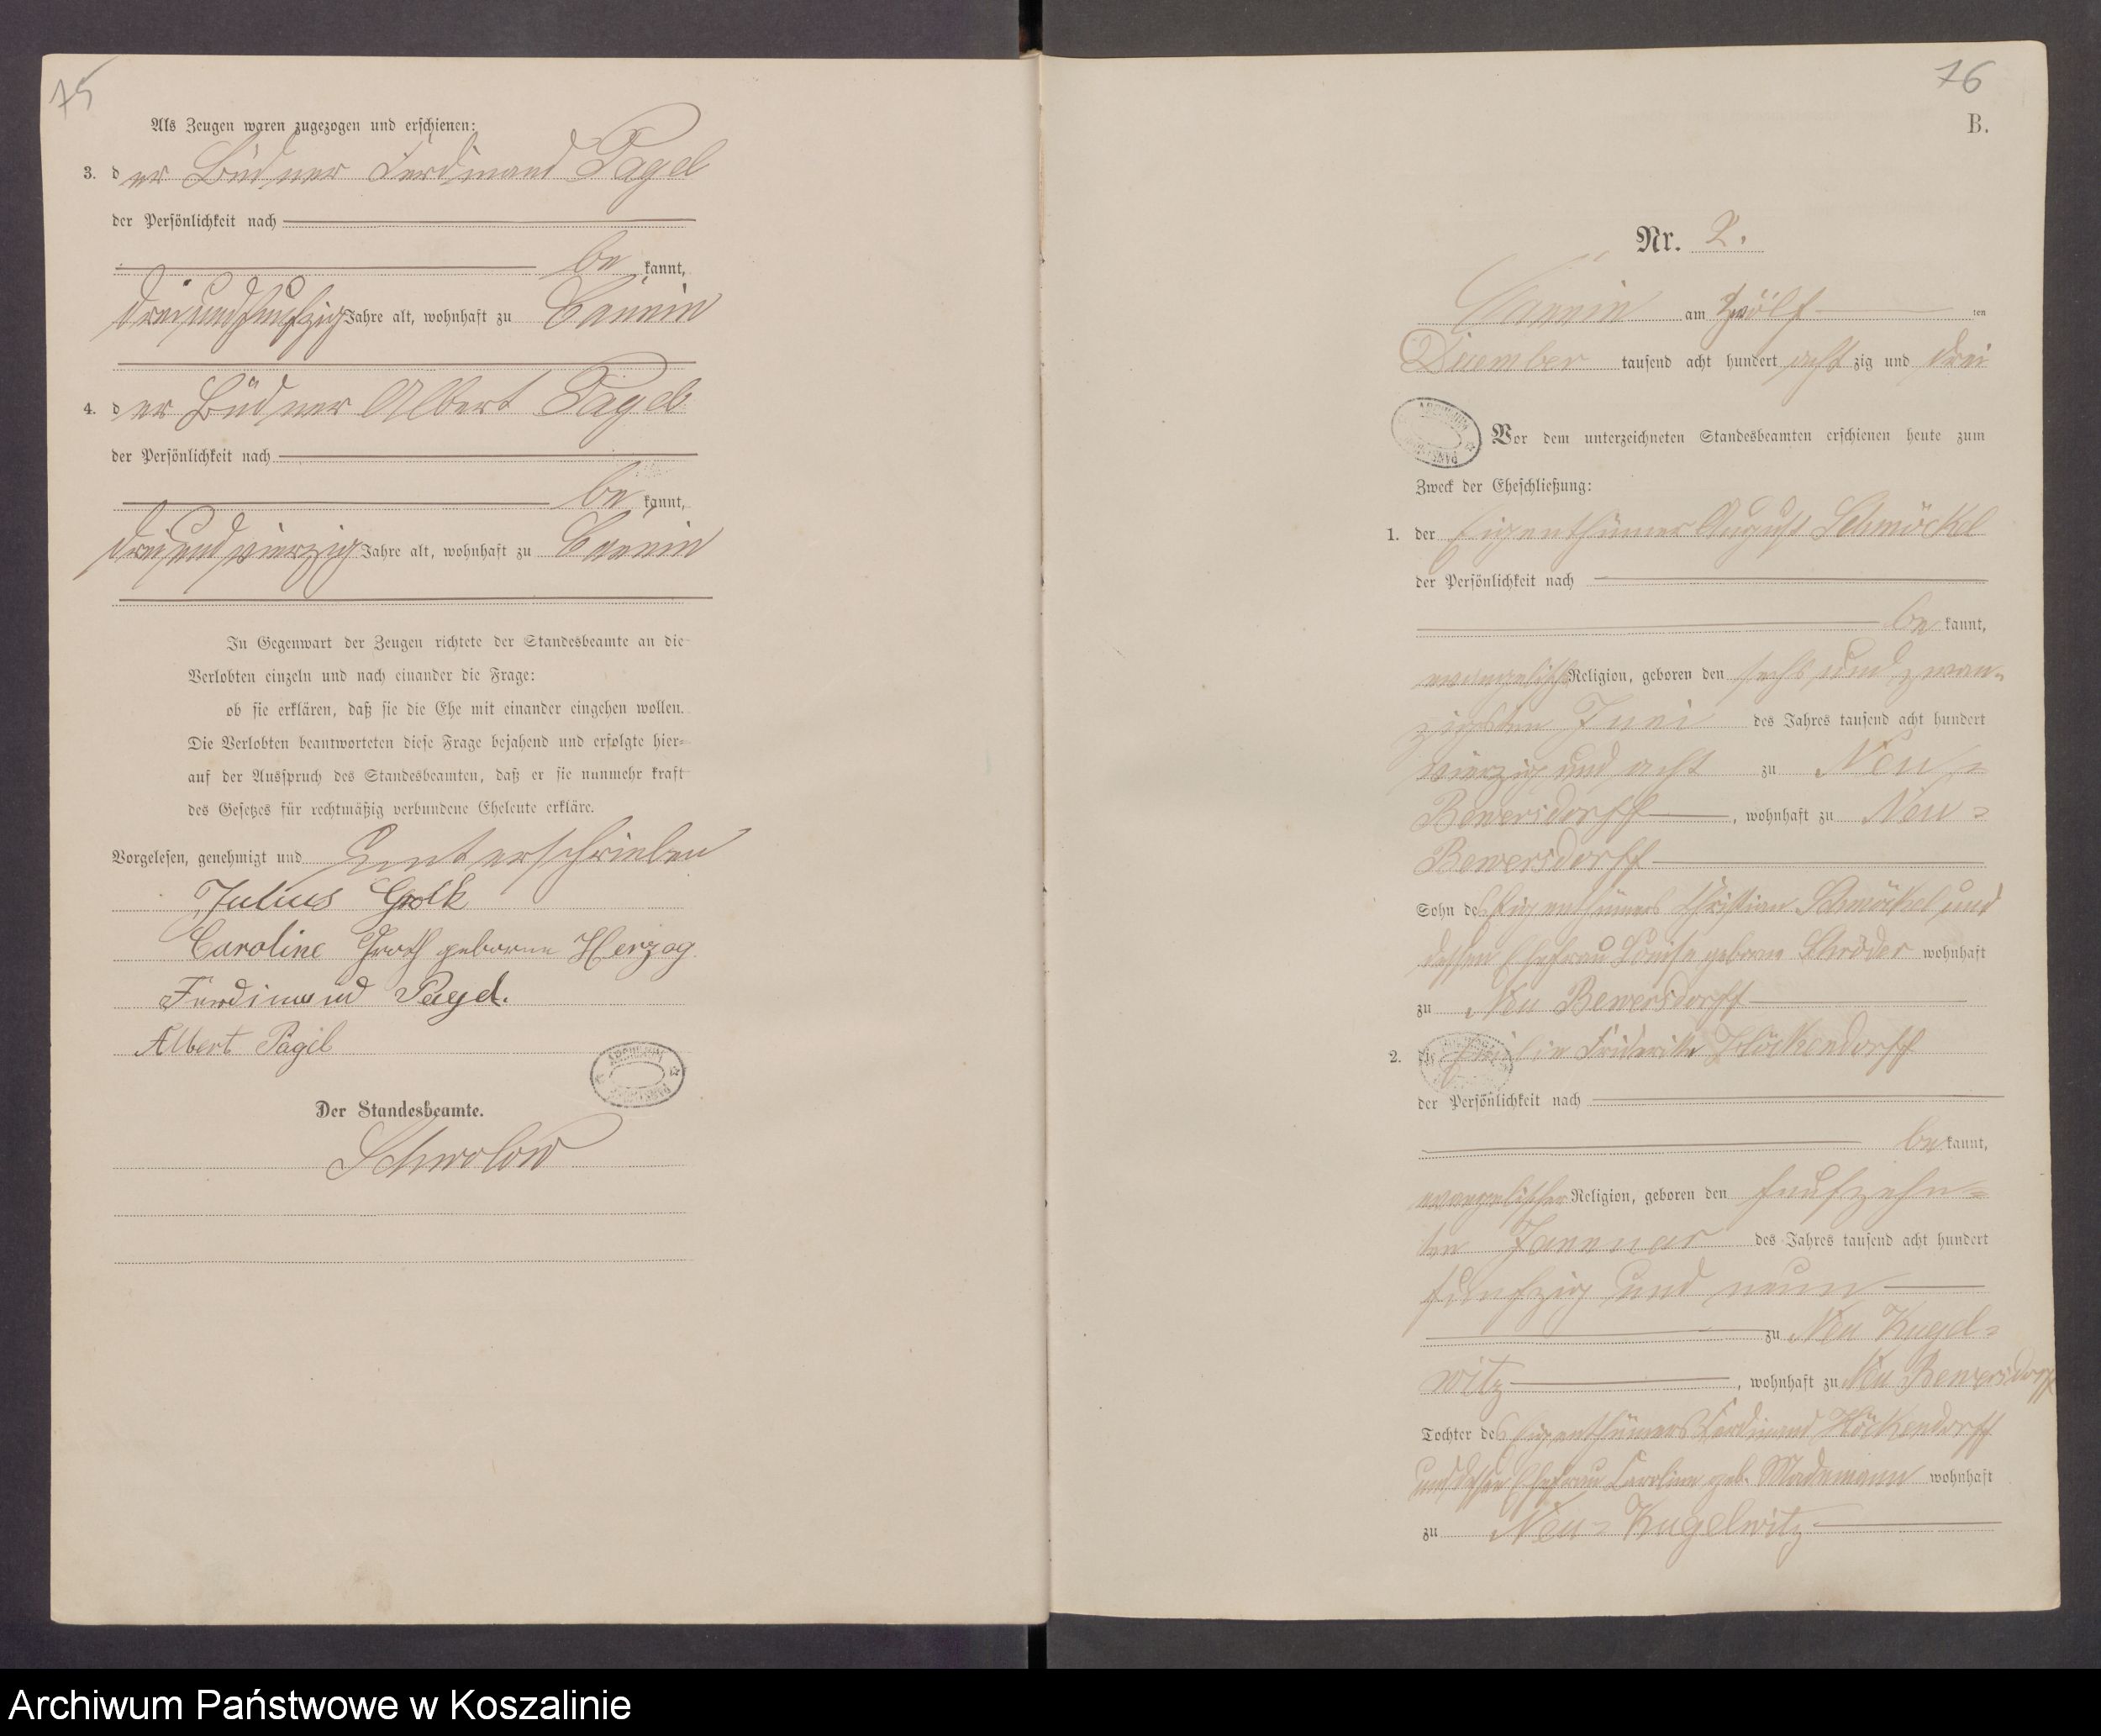 75
Als Zeugen waren zugezogen und erschienen:
3. der Büdner Ferdinand Pagel
der Persönlichkeit nach
be kannt,
dreiundfünfzig Jahre alt, wohnhaft zu Cannin
4. der Büdner Albert Pagel
der Persönlichkeit nach
be kannt,
dreiundvierzig Jahre alt, wohnhaft zu Cannin
In Gegenwart der Zeugen richtete der Standesbeamte an die
Verlobten einzeln und nach einander die Frage:
ob sie erklären, daß sie die Ehe mit einander eingehen wollen.
Die Verlobten beantworteten diese Frage bejahend und erfolgte hier-
auf der Ausspruch des Standesbeamten, daß er sie nunmehr kraft
des Gesetzes für rechtmäßig verbundene Eheleute erkläre.
Vorgelesen, genehmigt und unterschrieben
Julius
Caroline Groth geborne Herzog
Ferdinand Pagel.
Albert Pagel
Der Standesbeamte.
Schwolow
76
B.
Nr. 2.
Cannin am zwölf ten
December tausend acht hundert acht zig und drei
Vor dem unterzeichneten Standesbeamten erschienen heute zum
Zweck der Eheschließung:
1. der Eigenthümer August Schmöckel
der Persönlichkeit nach
be kannt,
evangelisch Religion, geboren den sechs und zwan-
zigsten Juni des Jahres tausend acht hundert
vierzig und acht zu Neu-
Bewersdorff, wohnhaft zu Neu-
Bewersdorff
Sohn des Eigenthümers Christian Schmöckel und
dessen Ehefrau Louise geborne Schröder wohnhaft
zu Neu Bewersdorff
2. die Friderike Höckendorff
der Persönlichkeit nach
be kannt,
evangelischer Religion, geboren den fünfzehn-
ten Januar des Jahres tausend acht hundert
fünfzig und neun
zu Neu Kugel-
witz, wohnhaft zu Neu Bewersdorff
Tochter des Eigenthümers Ferdinand Höckendorff
und dessen Ehefrau Caroline geb. Mademann wohnhaft
zu Neu-Kugelwitz
Archiwum Państwowe w Koszalinie